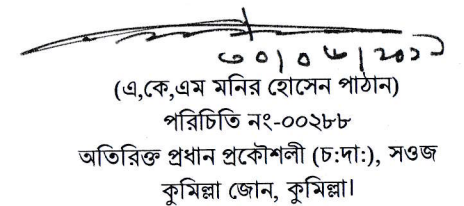 ৩০|০৬|২০২১
(এ,কে,এম মনির হোসেন পাঠান)
পরিচিতি নং-০০২৮৮
অতিরিক্ত প্রধান প্রকৌশলী (চ:দা:), সওজ
কুমিল্লা জোন, কুমিল্লা।